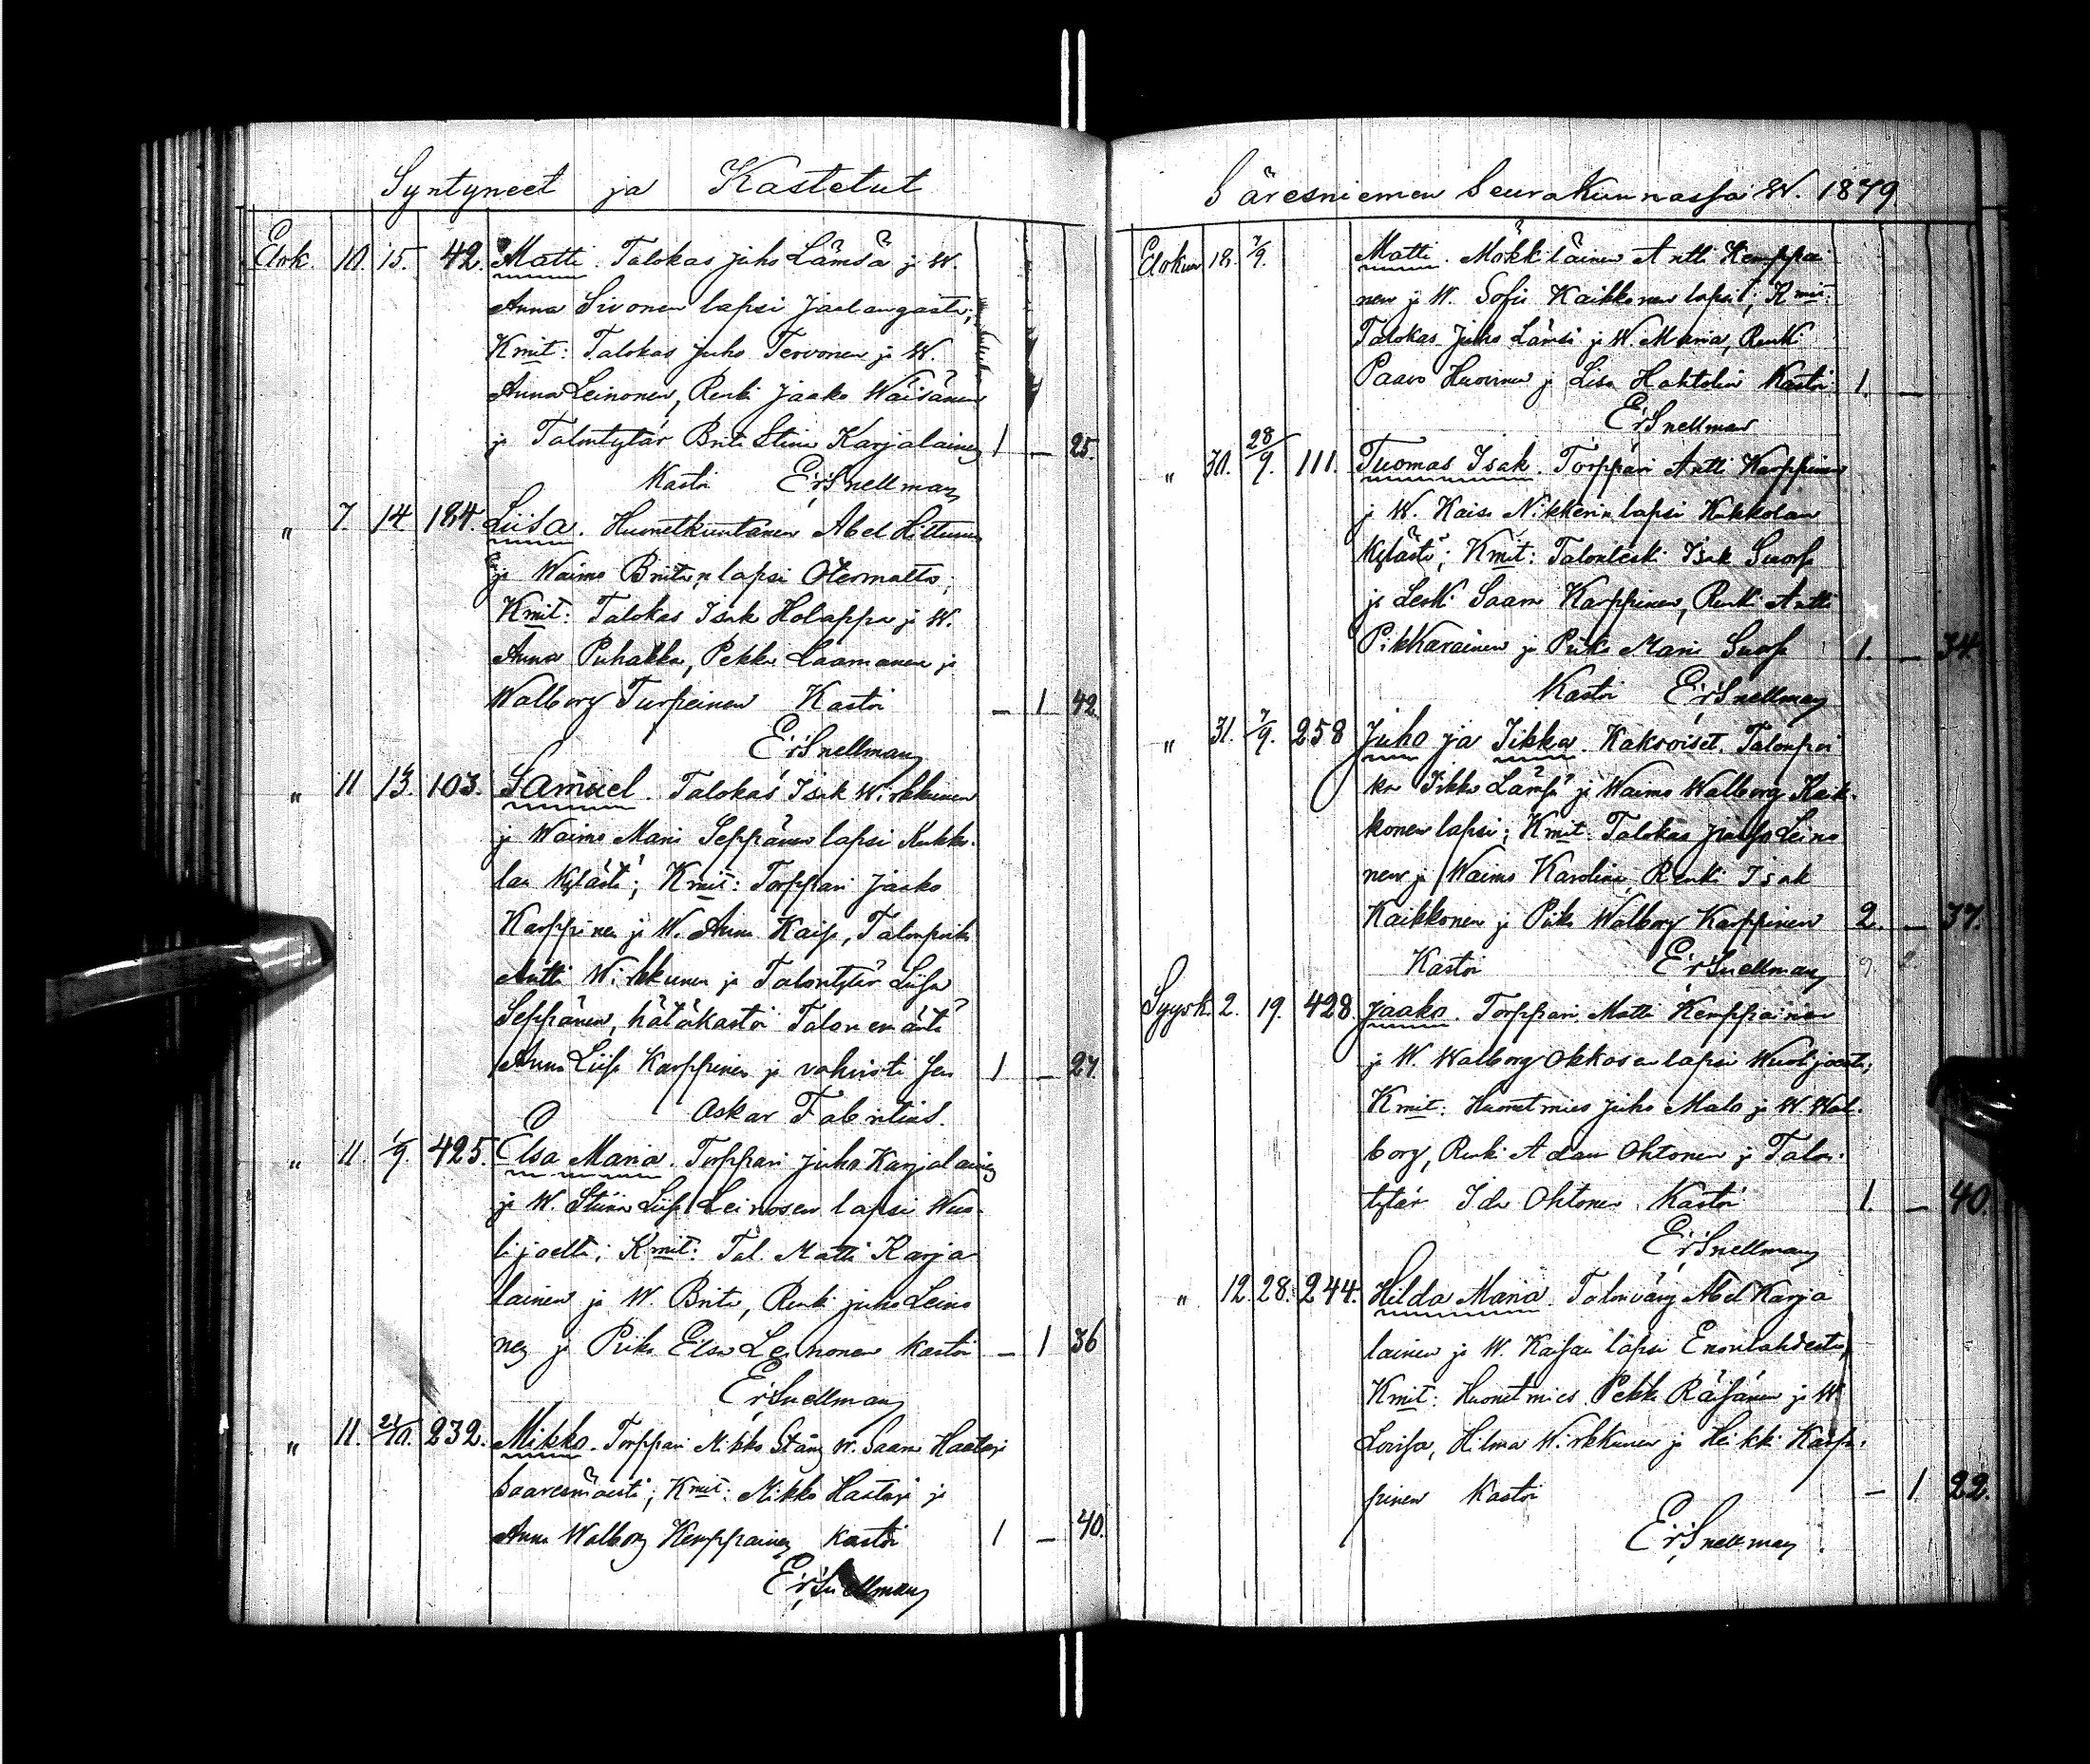 Syntyneet ja Kastetut
Elok. 10. 15. 42. Matti. Talokas Juho Lämsä ja W.
Anna Sivonen lapsi Jaalangasta;
Kmit: Talokas Juho Tervonen ja W.
Anna Leinonen, Renki Jaako Wäisänen
ja Talontytär Brita Stina Karjalainen 1 — 25.
Kastoi E:r Snellman
" 7. 14 184. Liisa. Huonetkuntanen Abel Hiltunen
ja Waimo Britan lapsi Otermalta;
Kmit: Talokas Isak Holappa ja W.
Anna Puhakka, Pekka Laamanen ja
Walborg Turpeinen Kastoi — 1 42.
E:r Snellman
" 11 13. 103. Samuel. Talokas Isak Wirkkunen
ja Waimo Maria Seppänen lapsi Kukko-
lan kylästä; Kmit: Torppari Jaako
Karppinen ja W. Anna Kaisa, Talonpoika
Antti Wirkkunen ja Talontytär Liisa
Seppänen, hätäkastoi Talon emäntä
Anna Liisa Karppinen ja vahvisti sen 1 — 27.
Oskar Fabritius.
" 11. 1/9. 425. Elsa Maria. Torppari Juho Karjalainen
ja W. Stiina Liisa Leinosen lapsi Wuo-
lijoelta; Kmit: Tal. Matti Karja
lainen ja W. Brita, Renki Juho Leino
nen ja Piika Elsa Leinonen kastoi — 1 36
E:r Snellman
" 11. 21/10. 232. Mikko. Torppari Mikko Stång W. Saara Haataja
Saaresmäestä; Kmit: Mikko Haataja ja
Anna Walborg Kemppainen kastoi 1 — 40.
E:r Snellman
Säresniemen Seurakunnassa W. 1879.
Elokuu 18. 7/9. Matti. Mökkiläinen Antti Kemppai
nen ja W. Sofia Kaikkonen lapsi; Kmit:
Talokas Juho Lämsä ja W. Maria, Renki
Paavo Huovinen ja Lisa Hahtola Kastoi 1. —
E:r Snellman
" 30. 28/9. 111. Tuomas Isak. Torppari Antti Karppinen
ja W. Kaisa Nikkerin lapsi Kukkolan
kylästä; Kmit: Talonleski Isak Suorsa
ja Leski Saara Karppinen, Renki Antti
Pikkarainen ja Piika Maria Suorsa 1. — 34.
Kastoi E:r Snellman
" 31. 7/9. 258 Juho ja Iikka. Kaksoiset. Talonpoi
ka Iikka Lämsä ja Waimo Walborg Kaik-
konen lapsi; Kmit: Talokas Juho Leino
nen ja Waimo Karolina, Renki Isak
Kaikkonen ja Piika Walborg Karppinen 2. — 37.
Kastoi E:r Snellman
Syysk. 2. 19. 428. Jaako. Torppari Matti Kemppainen
ja W. Walborg Okkosen lapsi Wuolijoelta;
Kmit: Huonetmies Juho Malo ja W. Wal-
borg, Renki Adam Ohtonen ja Talon
tytär Ida Ohtonen Kastoi 1. — 40.
E:r Snellman
" 12. 28. 244. Hilda Maria. Talonväny Abel Karja
lainen ja W. Kaisan lapsi Enonlahdesta;
Kmit: Huonetmies Pekka Räisänen ja W.
Lovisa, Hilma Wirkkunen ja Heikki Karp-
pinen Kastoi — 1 22.
E:r Snellman